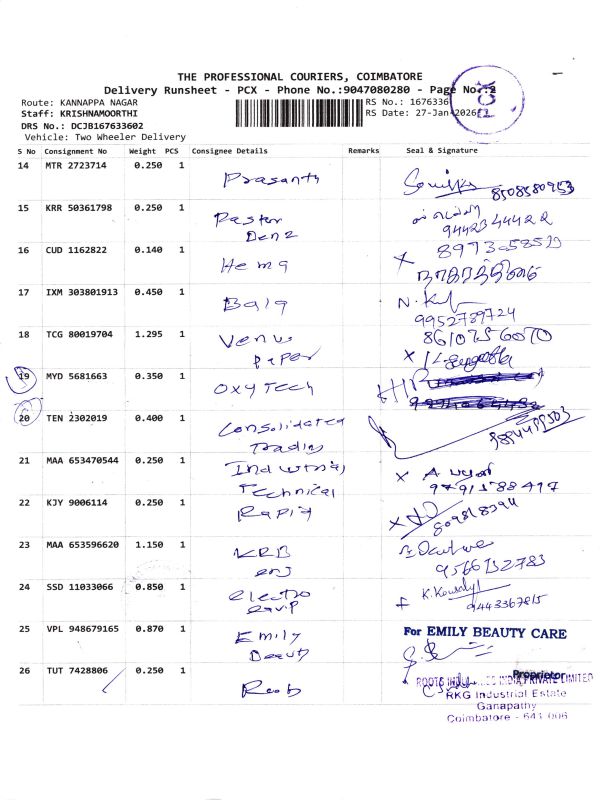 THE PROFESSIONAL COURIERS, COIMBATORE
Delivery Runsheet - PCX - Phone No.:9047080280 - Page No.:2
PCX
Route: KANNAPPA NAGAR
RS No.: 1676336
Staff: KRISHNAMOORTHI
RS Date: 27-Jan-2026
DRS No.: DCJB167633602
Vehicle: Two Wheeler Delivery
S No Consignment No Weight PCS Consignee Details Remarks Seal & Signature
14 MTR 2723714 0.250 1 Prasanth 8508580953
15 KRR 50361798 0.250 1 Paster
Danz 9442344422
16 CUD 1162822 0.140 1 Hema
17 IXM 303801913 0.450 1 Bala 9952789724
18 TCG 80019704 1.295 1 Venus
Paper
8610756070
19 MYD 5681663 0.350 1 OXYTech
20 TEN 2302019 0.400 1 Consolidated
Trading
21 MAA 653470544 0.250 1 Industrial
Technical
22 KJY 9006114 0.250 1 Rapid
23 MAA 653596620 1.150 1 KRB
enj
9566132783
24 SSD 11033066 0.850 1 electro
equip
K. Kowsalya
9443367815
25 VPL 948679165 0.870 1 Emily
Beauty
For EMILY BEAUTY CARE
Proprietor
26 TUT 7428806 0.250 1 Roots
ROOTS INDUSTRIES INDIA PRIVATE LIMITED
RKG Industrial Estate
Ganapathy
Coimbatore - 641 006